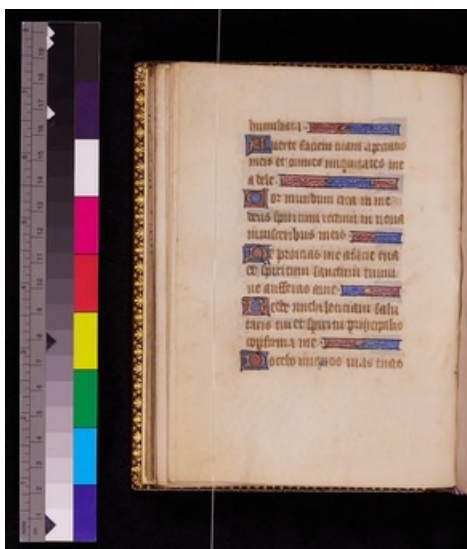 humiliata.
Auerte faciem tuam a peccatis
meis et omnes iniquitates me
as dele.
Cor mundum crea in me
deus spiritum rectum in noua
in uisceribus meis.
Ne proicias me a facie tua
et spiritum sanctum tuum
ne auferas a me.
Redde michi leticiam salu
taris tui et spiritu principali
confirma me.
Docebo iniquos uias tuas